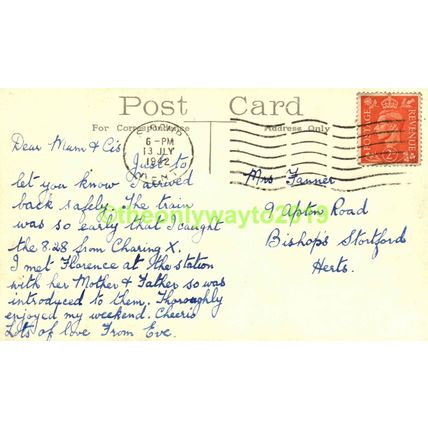 Post Card
For Correspondence
Address Only
6-PM
13 JLY
POSTAGE
REVENUE
Dear Mum & Cis
Just to
let you know I arrived
back safely. The train
was so early that I caught
the 8.28 from Charing X.
I met Florence at the station
with her Mother & Father so was
introduced to them. Thoroughly
enjoyed my weekend. Cheerio
Lots of love From Eve.
Mrs Fanner
9 Apton Road
Bishop's Stortford
Herts.
©theonlywayto2019